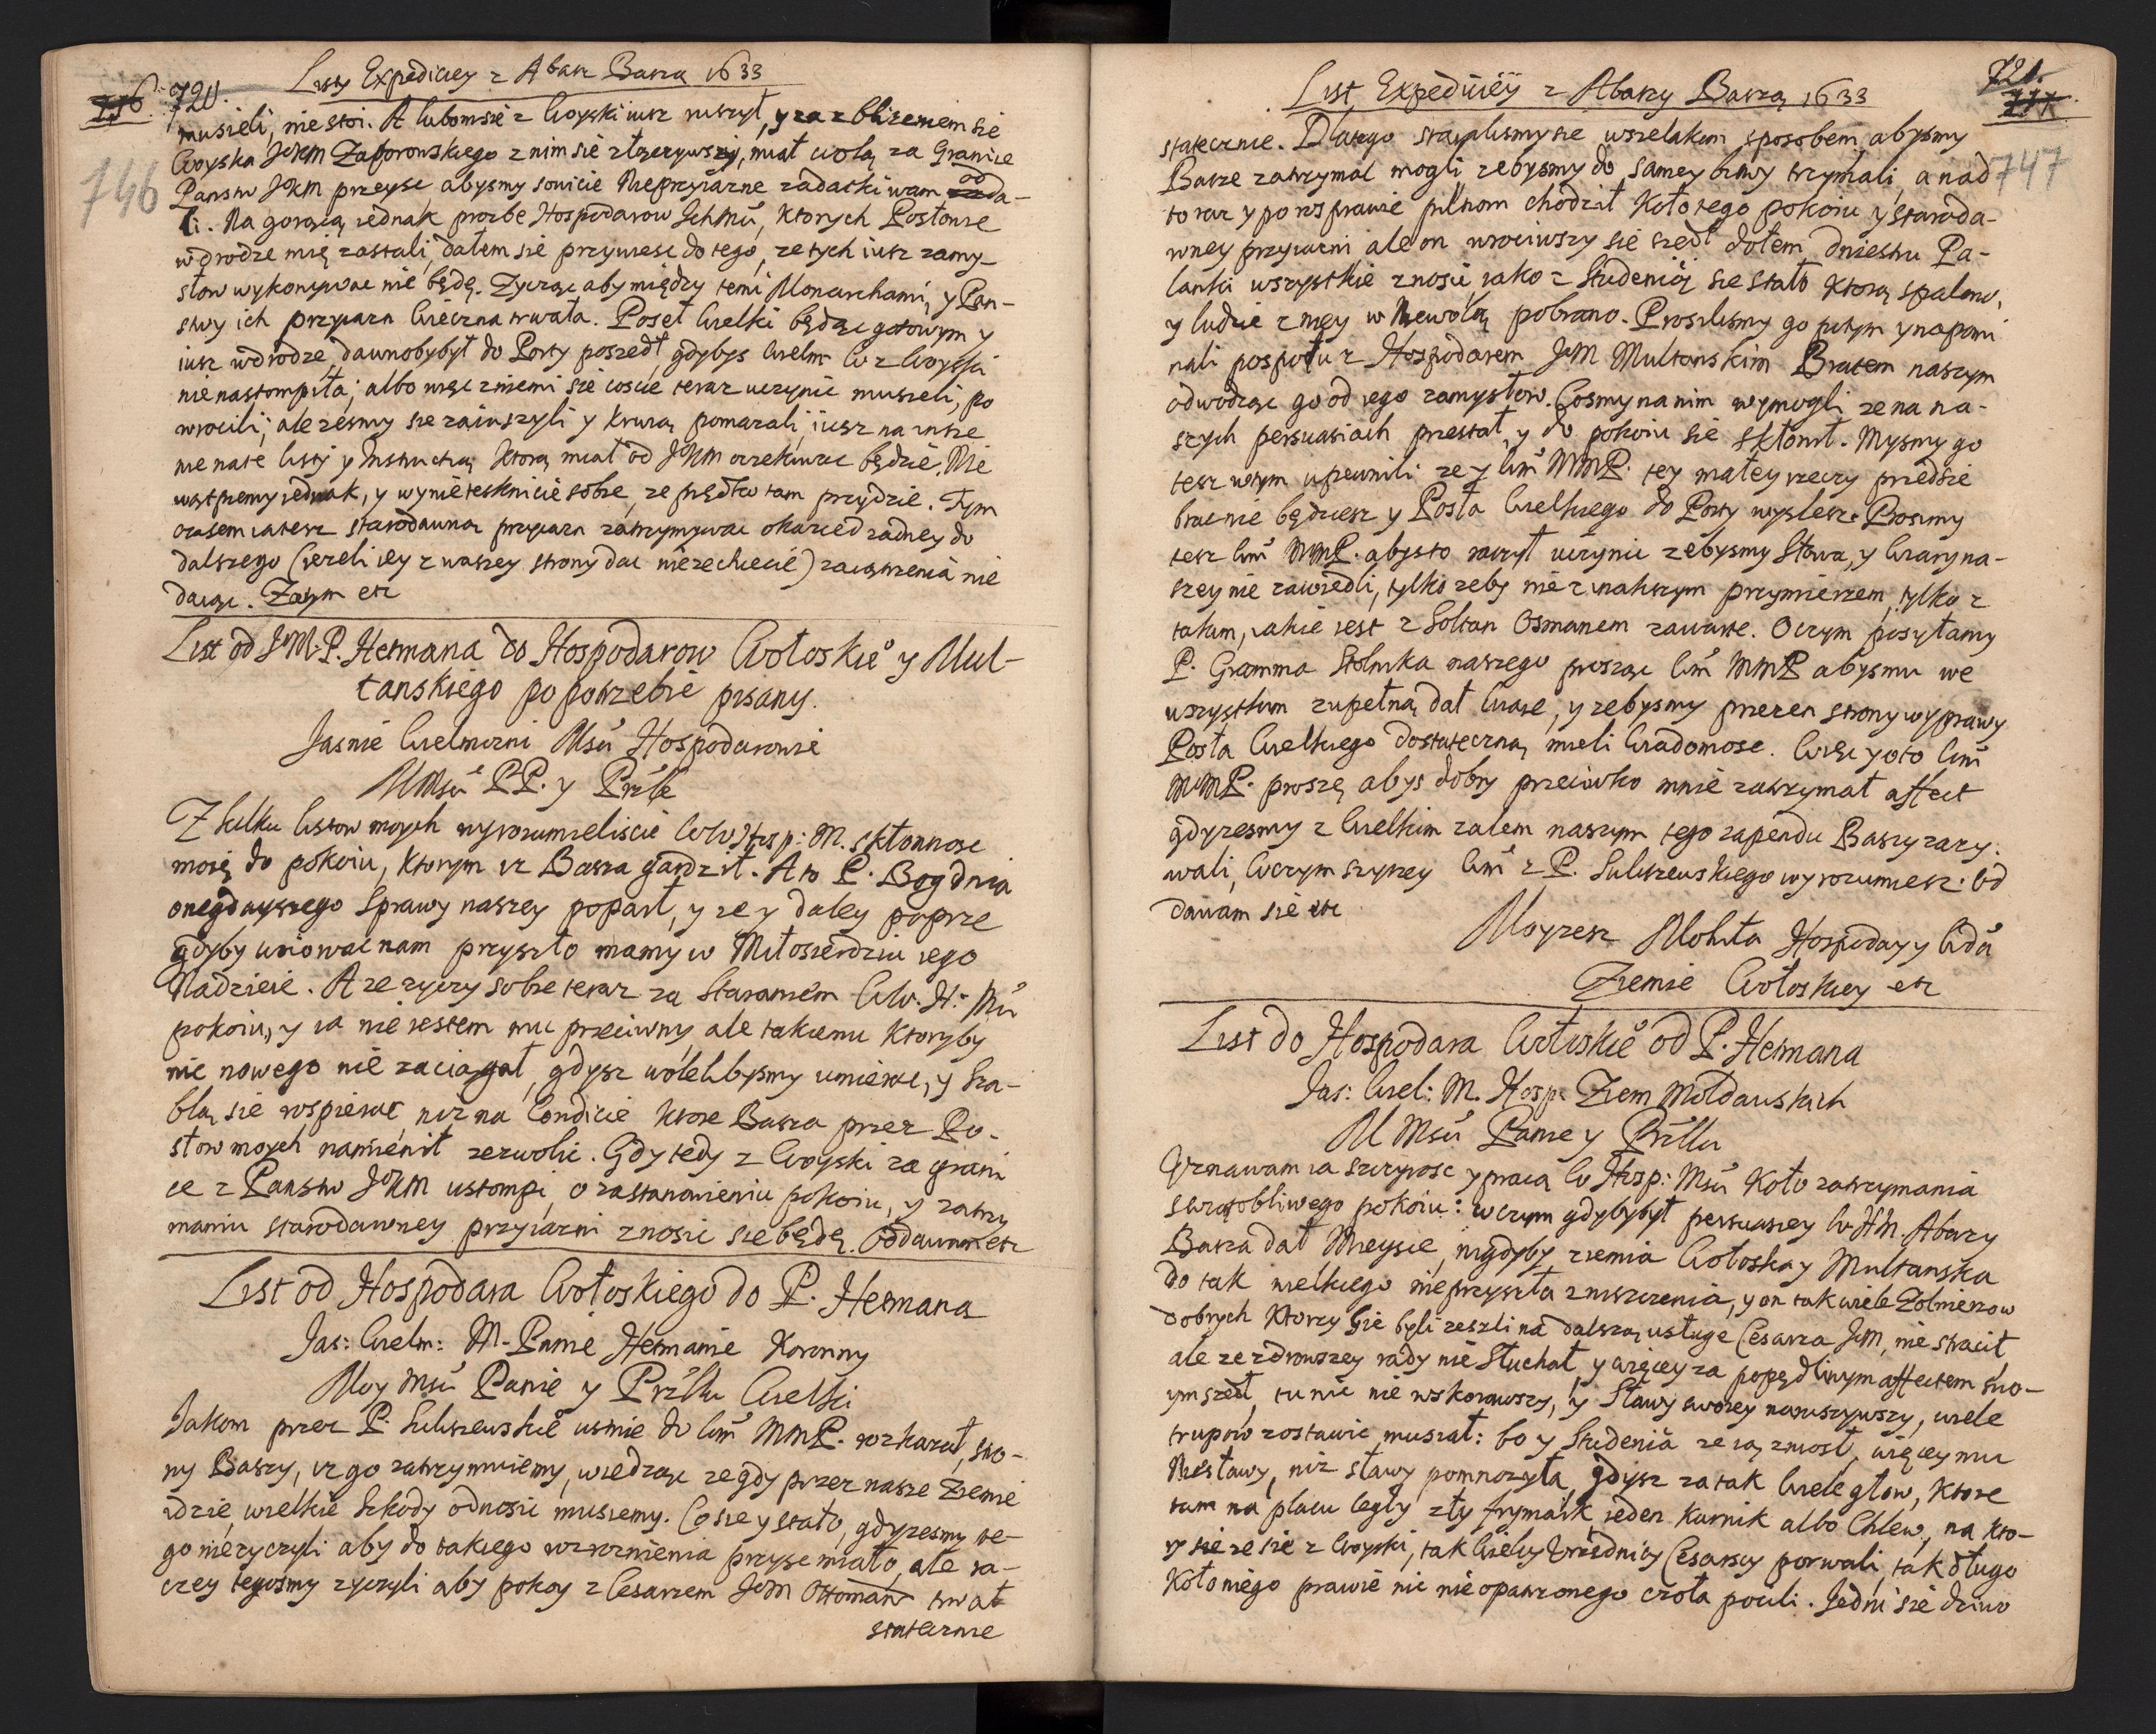 716. 720. Listy Expediciey z Abasz Baszą 1633
746
musieli, nie stoi. A lubom sie z Woyski iusz ruszył, y za zbliżeniem sie
Woyska JKM Zaporowskiego z nim sie złączywszy, miał wolą za Granice
Panstw JKM przeysc abysmy sowicie Nieprzyiazne zadatki wam odda-
li. Na gorącą iednak prozbe Hospodarow Ichmċi, ktorych Posłowie
w drodze mię zastali, dałem sie przywiesc do tego, ze tych iusz zamy-
słow wykonywac nie będę. Zycząc aby między temi Monarchami, y Pan-
stwy ich przyiazn wieczna trwała. Poseł Wielki będąc gotowym y
iusz w drodze, dawnoby był do Porty poszedł gdybys Wielm: W z Woyski
nie nastompiła; albo więc z niemi sie coscie teraz uczynic musieli, po
wrocili; ale zesmy sie zaiuszyli y krwią pomazali, iusz na insze
nie nate listy y Instructią ktorą miał od JKM oczekiwac będzie. Nie
wątpiemy iednak, y wy nie teschnicie sobie, ze prędko tam przydzie. Tym
czasem iatesz starodawną przyiazn zatrzymywac okaziei zadney do
dalszego (iezeli iey z waszey strony dac nie zechcecie) zaiątrzenia nie
daiąc. Zatym etc
List od JeM. P. Hetmana do Hospodarow Wołoskieº y Mul-
tanskiego po potrzebie pisany.
Jasnie Wielmozni Msċi Hospodarowie
M Msċi PP. y Przle
Z kilku listow moych wyrozumieliscie WW Hosp: M. skłonnosc
moię do pokoiu, ktorym isz Basza gardził. A to P. Bog dnia
onegdayszego Sprawy naszey poparł, y ze y daley poprze
gdyby woiowac nam przyszło mamy w Miłosierdziu iego
Nadzieie. A ze zyczy sobie teraz za staraniem WW. H: Mċi
pokoiu, y ia nie iestem mu przeciwny, ale takiemu ktoryby
nic nowego nie zaciągał, gdysz wolelibysmy umierac, y Sza-
blą się wspierac, niz na Conditie ktore Basza przez Po-
słow moych namienił zezwolic. Gdy tedy z Woyski za grani
ce z Panstw JKM ustompi, o zastanowieniu pokoiu, y zatrzy
maniu starodawney przyiazni znosic sie będę. Oddawam etc
List od Hospodara Wołoskiego do P. Hetmana
Jas: Wielm: M. Panie Hetmanie Koronny
Moy Msċi Panie y Przllu Wielki
Jakom przez P. Suliszewskieº ustnie do Wmċi MMP. rozkazał, stro-
ny Baszy, isz go zatrzymuiemy, wiedząc ze gdy przez nasze Ziemie
idzie, wielkie Szkody odnosic musiemy. Co sie y stało, gdyzesmy te-
go nie zyczyli aby do takiego rozroznienia przysc miało, ale ra-
czey tegosmy zyczyli aby pokoy z Cesarzem JeM Ottoman trwał
statecznie
List Expediciiey z Abazy Baszą 1633 721.
747
statecznie. Dlatego staralismy sie wszelakim sposobem, abysmy
Basze zatrzymac mogli zebysmy do samey zimy trzymali, a nad
to zaz y po rosprawie pilnom chodził koło tego pokoiu y staroda-
wney przyiazni ale on wrociwszy sie szedł dołem dniestru Pa-
lanki wszystkie znosic iako z Studenicą sie stało ktorą spalono,
y ludzie z niey w Niewolą pobrano. Prosilismy go pitym y napomi
nali pospołu z Hospodarem JeM Multanskim Bratem naszym
odwodząc go od iego zamysłow. Cosmy na nim wymogli, ze na na-
szych persuasiach przestał, y do pokoiu sie skłonił. Mysmy go
tesz w tym upewnili ze y Wmċ MMP. tey małey rzeczy przedsie
brac nie będziesz y Posła Wielkiego do Porty wyslesz. Prosimy
tesz Wmċi MMP. abys to raczył uczynic zebysmy Słowa, y Wiary na-
szey nie zawiedli, tylko zeby nie z inakszym przymierzem, tylko z
takim, iakie iest z Soltan Osmanem zawarte. O czym posyłamy
P. Gramma Stolnika naszego prosząc Wmċi MMP abys mu we
wszystkim zupełną dał wiarę, y zebysmy przezen strony wyprawy
Posła Wielkiego dostateczną mieli wiadomosc. Więc y oto Wmċi
MMP. proszę abys dobry przeciwko mnie zatrzymał affect
gdyzesmy z Wielkim zalem naszym tego zapendu Baszy zazy.
wali, o czym szyrzey Wmċ z P. Suliszewskiego wyrozumiesz. Od
dawam sie etc
Moyzesz Mohiła Hospodar y Wdċa
Ziemie Wołoskiey etc
List do Hospodara Wołoskieº od P. Hetmana
Jas: Wiel: M. Hosp: Ziem Mołdawskich
M Msċi Panie y Przllu
Uznawam ia szczyrosc y pracą W Hosp: Msċi koło zatrzymania
swiątobliwego pokoiu: w czym gdyby był persuasiey W. H M. Abazy
Basza dał Mieysce, nigdyby ziemia Wołoska y Multanska
do tak wielkiego nie przyszła zniszczenia, y on tak wiele Zołnierzow
dobrych ktorzy sie byli zeszli na dalszą usługe Cesarza JeM, nie stracił
ale ze zdrowszey rady nie Słuchał, y więcey za popędliwym affectem swo-
ym szedł, tu nic nie wskorawszy, y Sławy swoiey naruszywszy, wiele
trupow zostawic musiał: bo y Studenica ze ią zniosł, więcey mu
Niesławy, niz sławy pomnozyła, gdysz za tak wiele głow, ktore
tam na placu legły zły frymark ieden kurnik albo Chlew, na kto-
ry sie ze sie z Woyski, tak wielcy Urzednicy Cesarscy porwali, tak długo
Koło niego prawie nic nie opatrzonego czoła pocili. Jedni sie dziwo